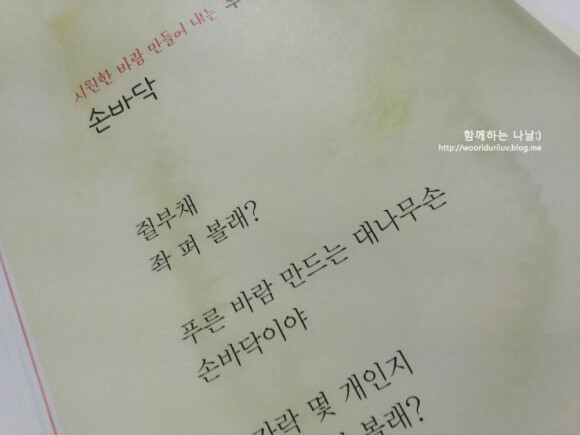 시원한 바람 만들어 내는
손바닥
함께하는 나날:)
http://wooriduriluv.blog.me
쥘부채
좍 펴 볼래?
푸른 바람 만드는 대나무손
손바닥이야
몇 개인지
볼래?